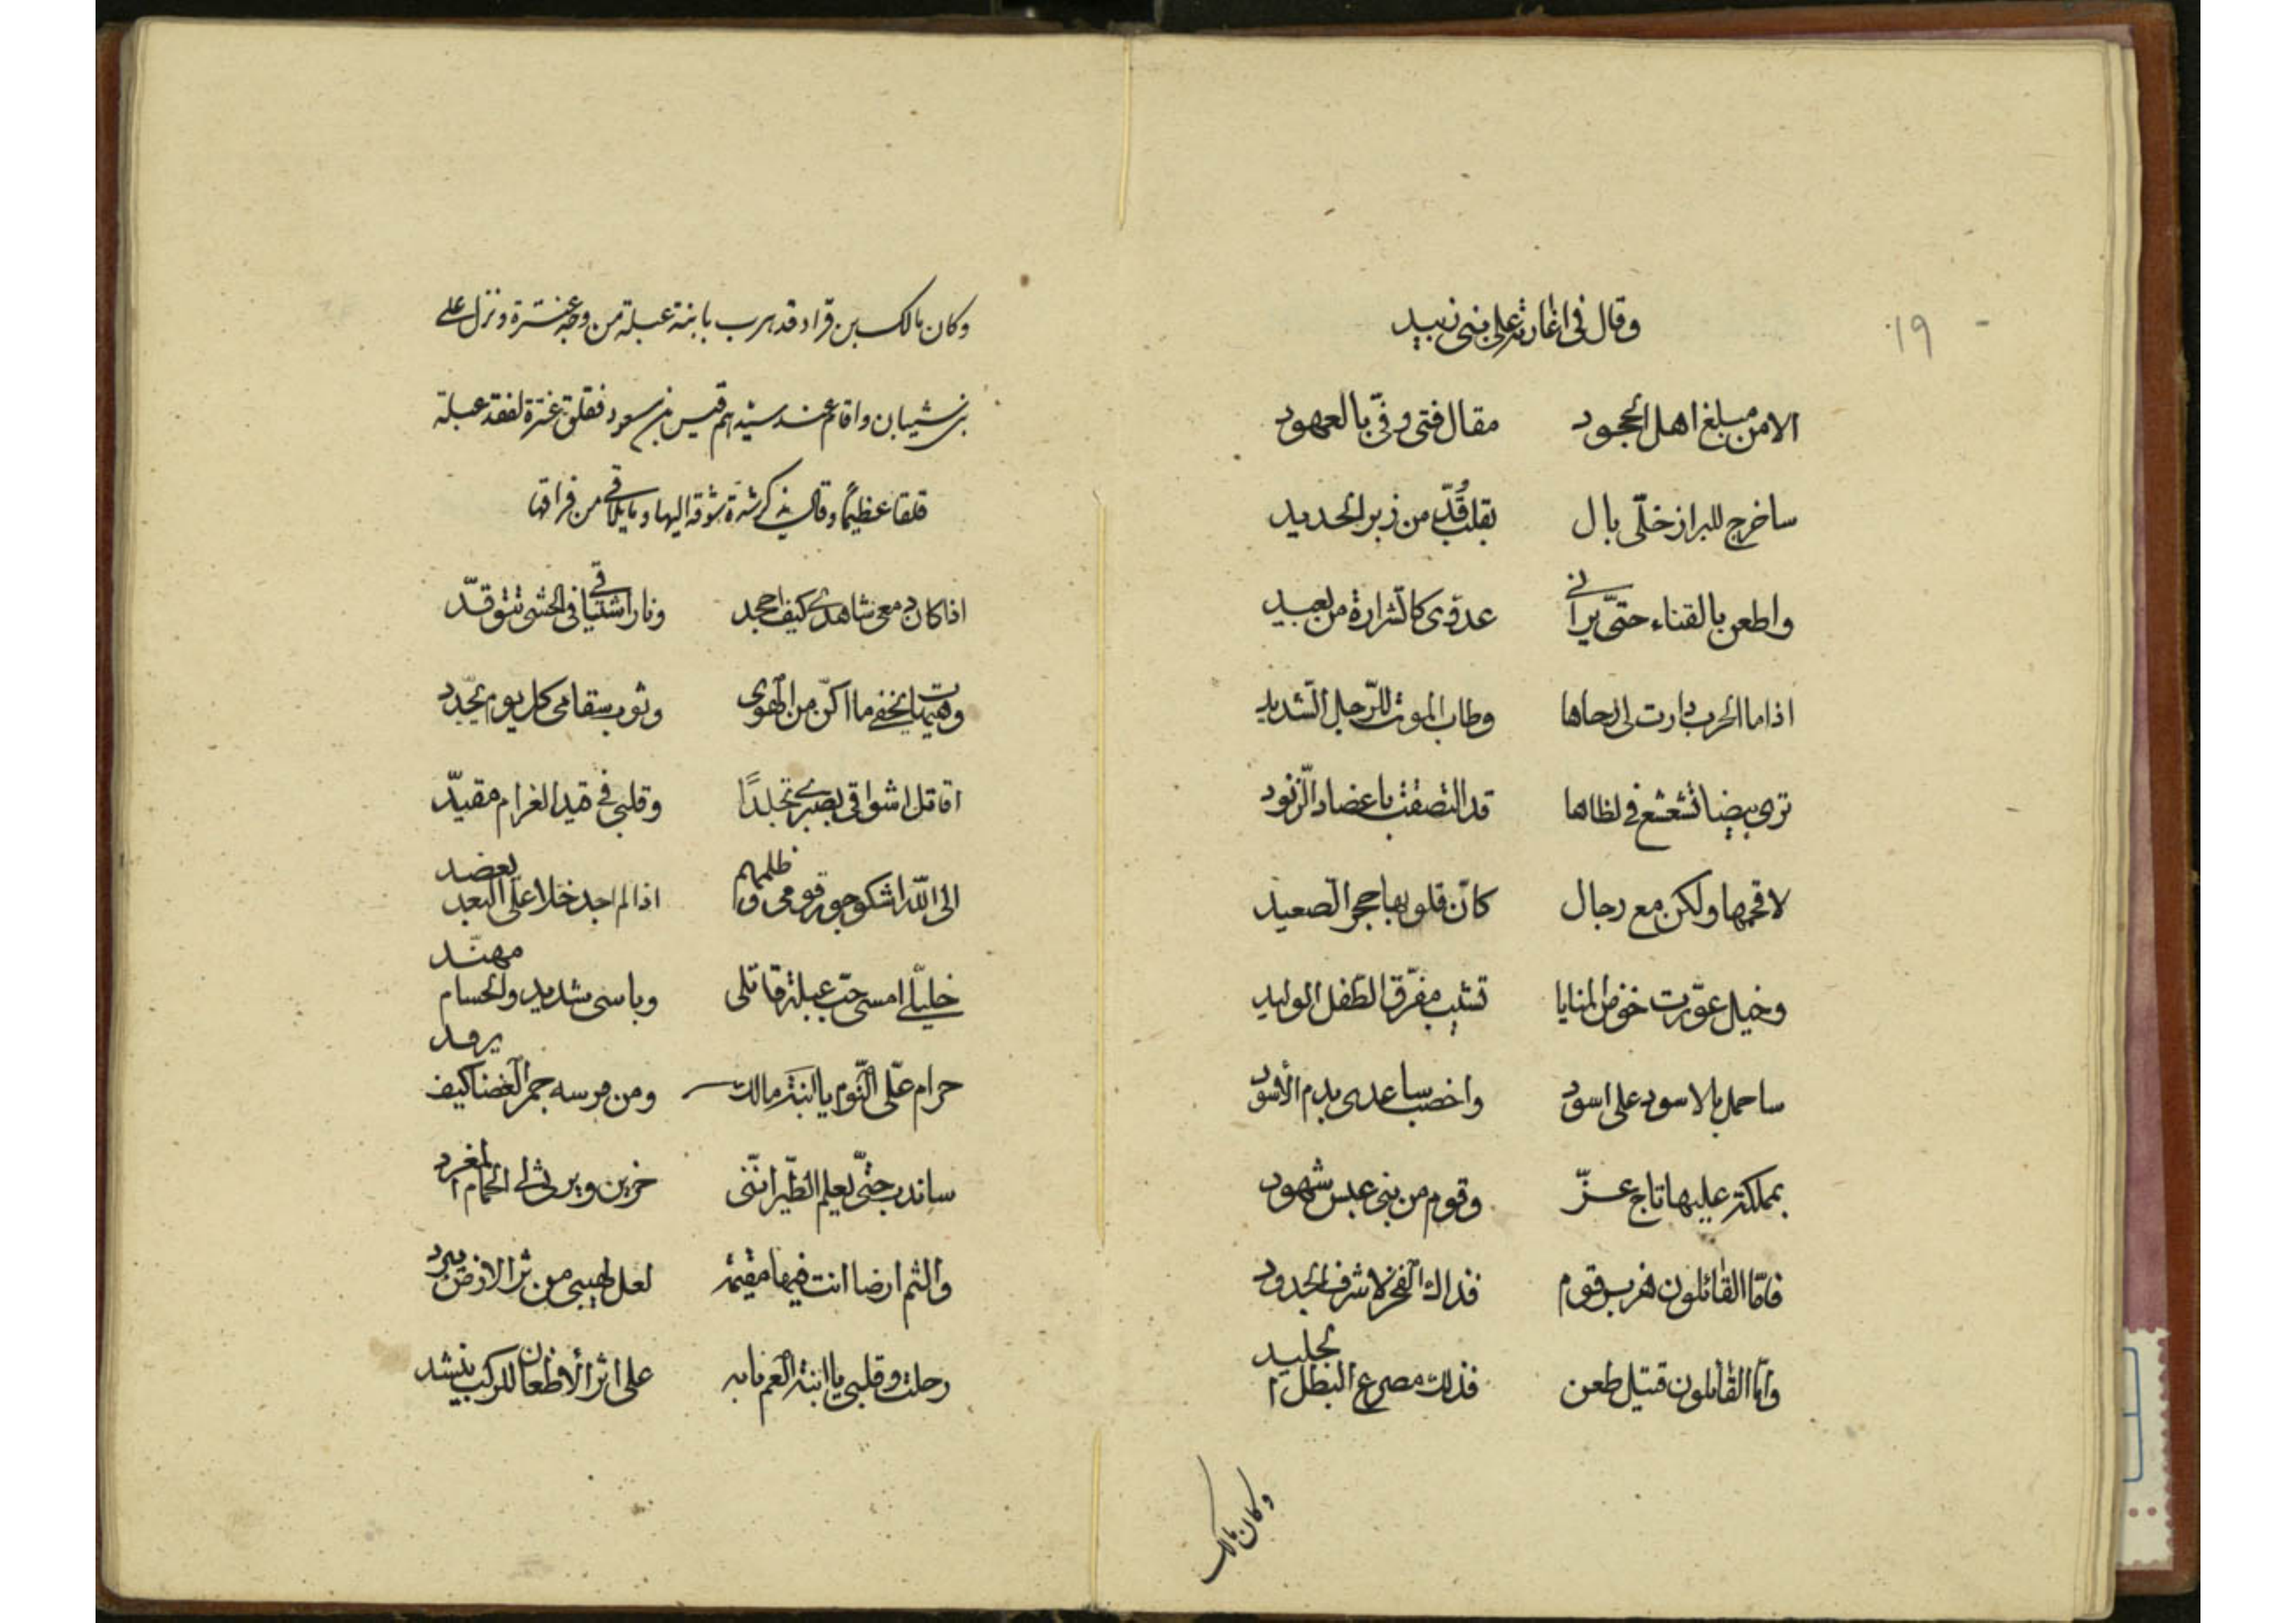 ١٩
وقال في اغارته على بني زبيد
الا من مبلغ اهل الجحود مقال فتى وفّى بالعهود
ساخرج للبراز خلّى بال بقلب قُدّ من زبر الحديد
واطعن بالقناء حتّى يرانى عدوى كالشرارة من بعيد
اذا ما الحرب دارت لى رحاها وطاب الموت للرّجل الشديد
ترى بيضا تشعشع فى لظاها قد التصقت باعضاد الزنود
لاقحمها ولكن مع رجال كانّ قلوبها حجر الصعيد
وخيل عوّدت خوض المنايا تشيب مفرّق الطفل الوليد
ساحمل بالاسود على اسود واخضب ساعدى بدم الأسود
بمملكة عليها تاج عزّ وقوم من بنى عبس شهود
فامّا القائلون هزبر قوم فذاك الفخر لا شرف الجدود
وامّا القائلون قتيل طعن فذلك مصرع البطل الجليد
وكان مالك
وكان مالك بن قراد قد هرب بابنته عبلة من وجه عنترة ونزل على
بنى شيبان واقام عند سيّدهم قيس بن مسعود فقلق عنترة لفقد عبلة
قلقا عظيمًا وقال يذكر شدّة شوقه اليها وما يلاقى من فراقها
اذا كان دمعى شاهدى كيف اجحد ونار اشتياقى فى الحشى تتوقدّ
وهيهات يخفى ما اكنّ من الهوى وثوب سقامى كل يوم يجّدد
اقاتل اشواقى بصبرى تجلدًا وقلبى فى قيد الغرام مقيدّ
الى الله اشكو جور قومى وظلمهم اذا لم اجد خلا على البعد يعضد
خليلّى امسى حبّ عبلة قاتلى وباسى شديد والحسام مهنّد
حرام علّى النّوم يا ابنَة مالك ومن فرسه جمر الغضا كيف يرقد
ساندب حتّى يعلم الطّير انّنى حزين ويرثى لى الحمام المغرد
والثم ارضا انت فيها مقيمة لعل لهيبى من ثرا الارض يبرد
رحلت وقلبى يا ابنة العم تابه على اثر الأظعان للركب ينشد